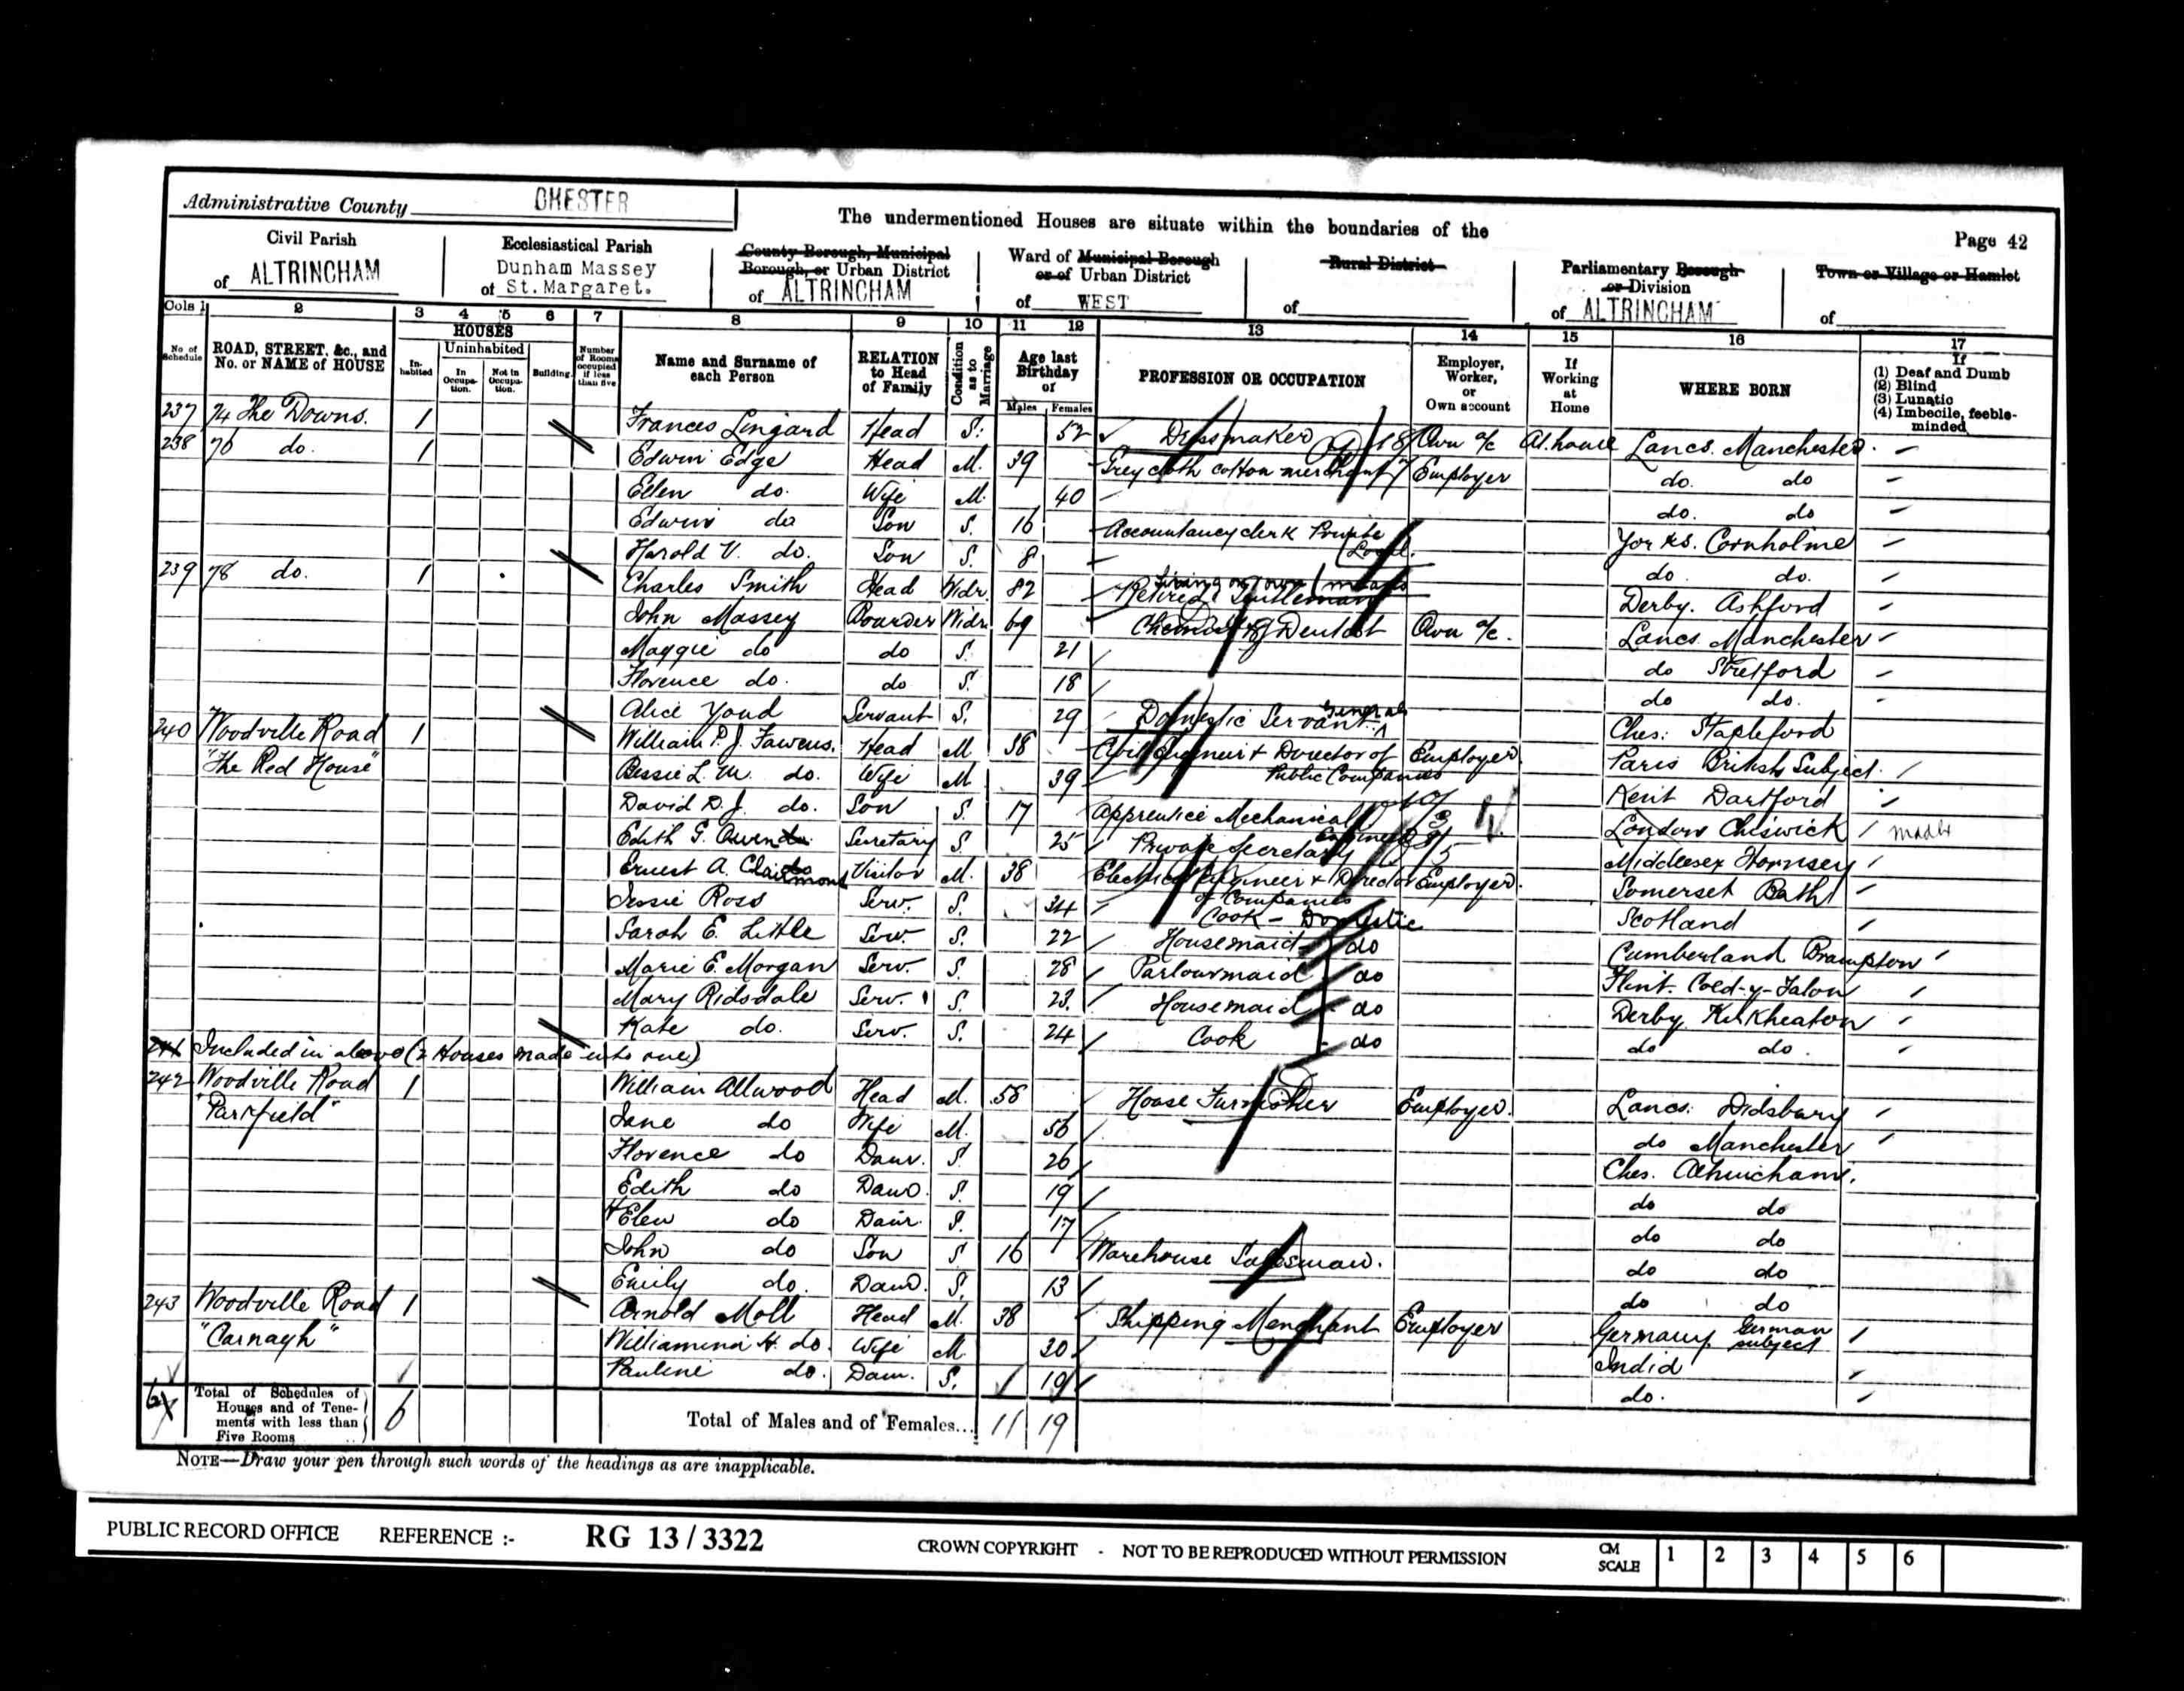 Administrative County CHESTER
The undermentioned Houses are situate within the boundaries of the
Page 42
Civil Parish of ALTRINCHAM
Ecclesiastical Parish of Dunham Massey St. Margaret.
County Borough, Municipal Borough, or Urban District of ALTRINCHAM
Ward of Municipal Borough or of Urban District of WEST
Rural District of
Parliamentary Borough or Division of ALTRINCHAM
Town or Village or Hamlet of
Cols 1 2 3 4 5 6 7 8 9 10 11 12 13 14 15 16 17
No of Schedule
ROAD, STREET, &c., and No. or NAME of HOUSE
HOUSES
Inhabited
Uninhabited
In Occupation.
Not in Occupation.
Building.
Number of Rooms occupied if less than five
Name and Surname of each Person
RELATION to Head of Family
Condition as to Marriage
Age last Birthday of
Males Females
PROFESSION OR OCCUPATION
Employer, Worker, or Own account
If Working at Home
WHERE BORN
If (1) Deaf and Dumb (2) Blind (3) Lunatic (4) Imbecile, feeble-minded
237 74 The Downs. 1 Frances Lingard Head S. 52 Dressmaker Own a/c At home Lancs. Manchester
238 76 do. 1 Edwin Edge Head M. 39 Grey cloth cotton merchant Employer do. do
Ellen do. Wife M. 40 do. do
Edwin do Son S. 16 Accountancy clerk Private Yorks. Cornholme
Harold V. do. Son S. 8 do. do.
239 78 do. 1 Charles Smith Head Widr. 82 Retired Gentleman Living on own means Derby. Ashford
John Massey Boarder Widr 69 Chemist & Dentist Own a/c. Lancs. Manchester
Maggie do do S. 21 do Stretford
Florence do. do S. 18 do do.
Alice Youd Servant S. 29 Domestic Servant General Ches: Stapleford
240 Woodville Road 1 William P. J. Fawcus. Head M 38 Civil Engineer & Director of Public Companies Employer Paris British Subject.
"The Red House" Bessie L. M. do. Wife M 39 Kent Dartford
David D. J. do. Son S. 17 Apprentice Mechanical Engineer London Chiswick
Edith G. Owen Secretary S 25 Private Secretary Middlesex Hornsey
Ernest A. Claremont Visitor M. 38 Electrical Engineer & Director of Companies Employer. Somerset Bath
Jessie Ross Serv. S. 34 Cook - Domestic Scotland
Sarah E. Little Serv. S. 22 Housemaid do Cumberland Brampton
Marie E. Morgan Serv. S. 28 Parlourmaid do Flint. Coed-y-Talon
Mary Ridsdale Serv. S. 23. Housemaid do Derby Kirkheaton
Kate do. Serv. S. 24 Cook - do do do.
241 Included in above (2 Houses made into one)
242 Woodville Road 1 William Allwood Head M. 58 House Furnisher Employer. Lancs: Didsbury
"Parkfield" Jane do Wife M. 56 do Manchester
Florence do Daur. S. 26 Ches. Altrincham.
Edith do Daur. S. 19 do do
Elen do Daur. S. 17 do do
John do Son S 16 Warehouse Salesman. do do
Emily do. Daur. S. 13 do do
243 Woodville Road 1 Arnold Moll Head M. 38 Shipping Merchant Employer Germany German subject
"Carnagh" Williamina H. do. Wife M 30 India
Pauline do. Daur. S. 19 do.
Total of Schedules of Houses and of Tenements with less than Five Rooms 6
Total of Males and of Females... 11 19
NOTE—Draw your pen through such words of the headings as are inapplicable.
PUBLIC RECORD OFFICE REFERENCE :- RG 13 / 3322 CROWN COPYRIGHT - NOT TO BE REPRODUCED WITHOUT PERMISSION CM SCALE 1 2 3 4 5 6